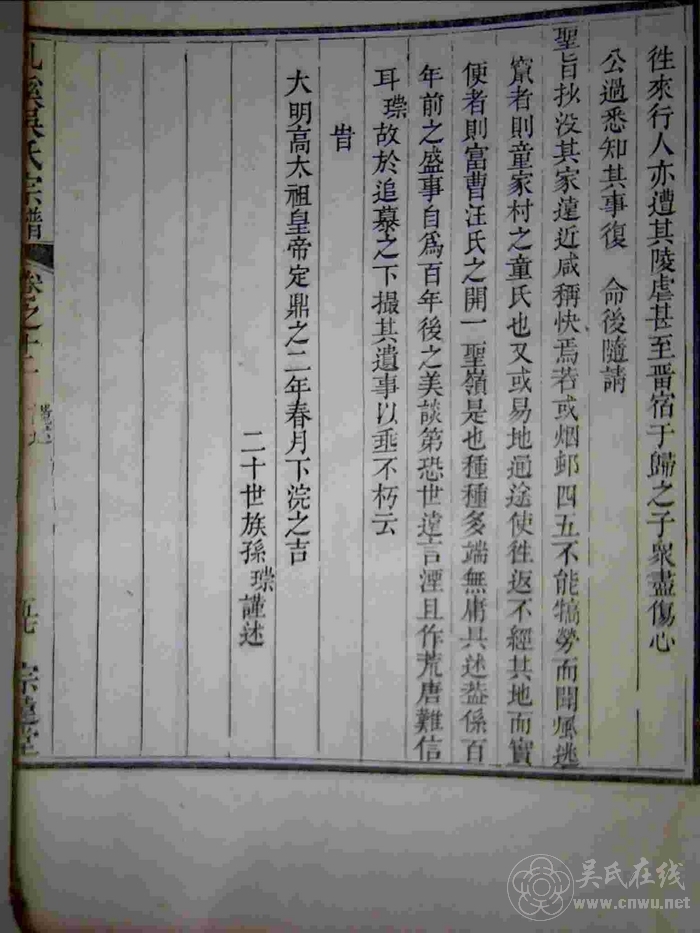 徃來行人亦遭其陵虐甚至晋宿于歸之子衆盡傷心
公過悉知其事復 命後隨請
聖旨抄没其家遠近咸稱快焉若或烟邨四五不能犒勞而聞風逃
竄者則童家村之童氏也又或易地通途使徃返不經其地而實
便者則富曹汪氏之開一聖嶺是也種種多端無庸具述葢係百
年前之盛事自爲百年後之美談第恐世遠言湮且作荒唐難信
耳瓅故於追慕之下撮其遺事以垂不朽云
旹
大明高太祖皇帝定鼎之二年春月下浣之吉
二十世族孫瓅謹述
溪吳氏宗譜 卷之十二
宗達堂
吴氏在线
www.cnwu.net